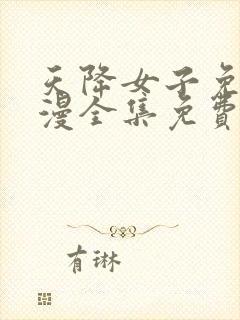 天降女子免
漫全集免費
有琳